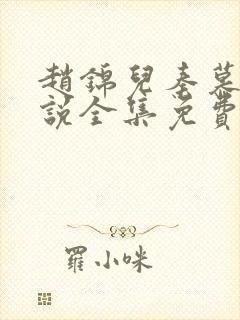 趙錦兒秦慕
說全集免費
羅小咪